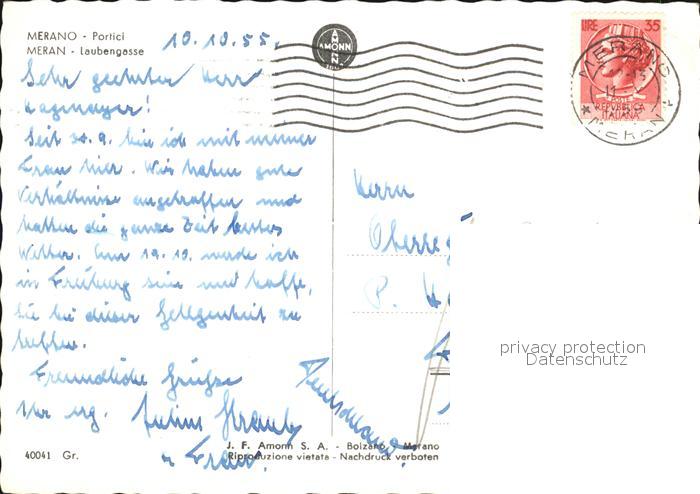 MERANO - Portici
MERAN - Laubengasse
10.10.55.
AMONN
Sehr geehrter Herr
Kazmayer!
Seit 30.9. bin ich mit meiner
Frau hier. Wir haben gute
Verhältnisse angetroffen und
hatten die ganze Zeit bestes
Wetter. Am 19.10. werde ich
in Freiburg sein und hoffe,
Sie bei dieser Gelegenheit zu
treffen.
Freundliche Grüße
Ihr erg.
u Frau.
LIRE 35
POSTE
REPUBBLICA
ITALIANA
MERANO
MERAN
Herrn
Oberre
P.
Deutschland
privacy protection
Datenschutz
40041 Gr.
J. F. Amonn S. A. - Bolzano - Merano
Riproduzione vietata - Nachdruck verboten